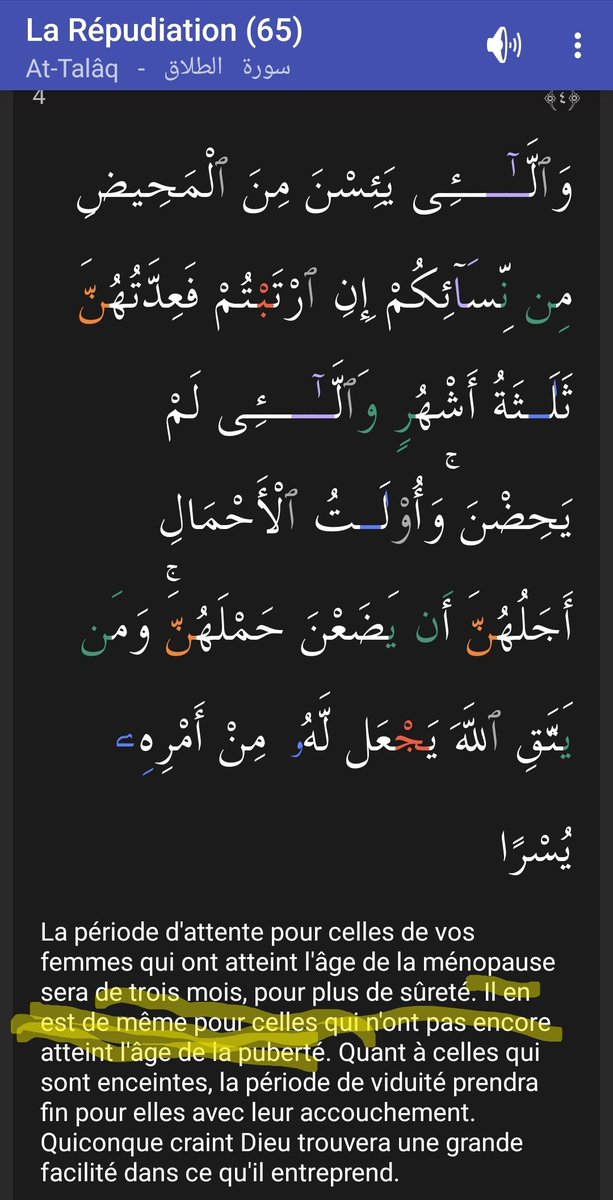 La Répudiation (65)
At-Talâq - سورة الطلاق
4 ﴿٤﴾
وَٱلَّـٰٓـِٔى يَئِسْنَ مِنَ ٱلْمَحِيضِ
مِن نِّسَآئِكُمْ إِنِ ٱرْتَبْتُمْ فَعِدَّتُهُنَّ
ثَلَـٰثَةُ أَشْهُرٍ وَٱلَّـٰٓـِٔى لَمْ
يَحِضْنَ ۚ وَأُو۟لَـٰتُ ٱلْأَحْمَالِ
أَجَلُهُنَّ أَن يَضَعْنَ حَمْلَهُنَّ ۚ وَمَن
يَتَّقِ ٱللَّهَ يَجْعَل لَّهُۥ مِنْ أَمْرِهِۦ
يُسْرًا
La période d'attente pour celles de vos
femmes qui ont atteint l'âge de la ménopause
sera de trois mois, pour plus de sûreté. Il en
est de même pour celles qui n'ont pas encore
atteint l'âge de la puberté. Quant à celles qui
sont enceintes, la période de viduité prendra
fin pour elles avec leur accouchement.
Quiconque craint Dieu trouvera une grande
facilité dans ce qu'il entreprend.